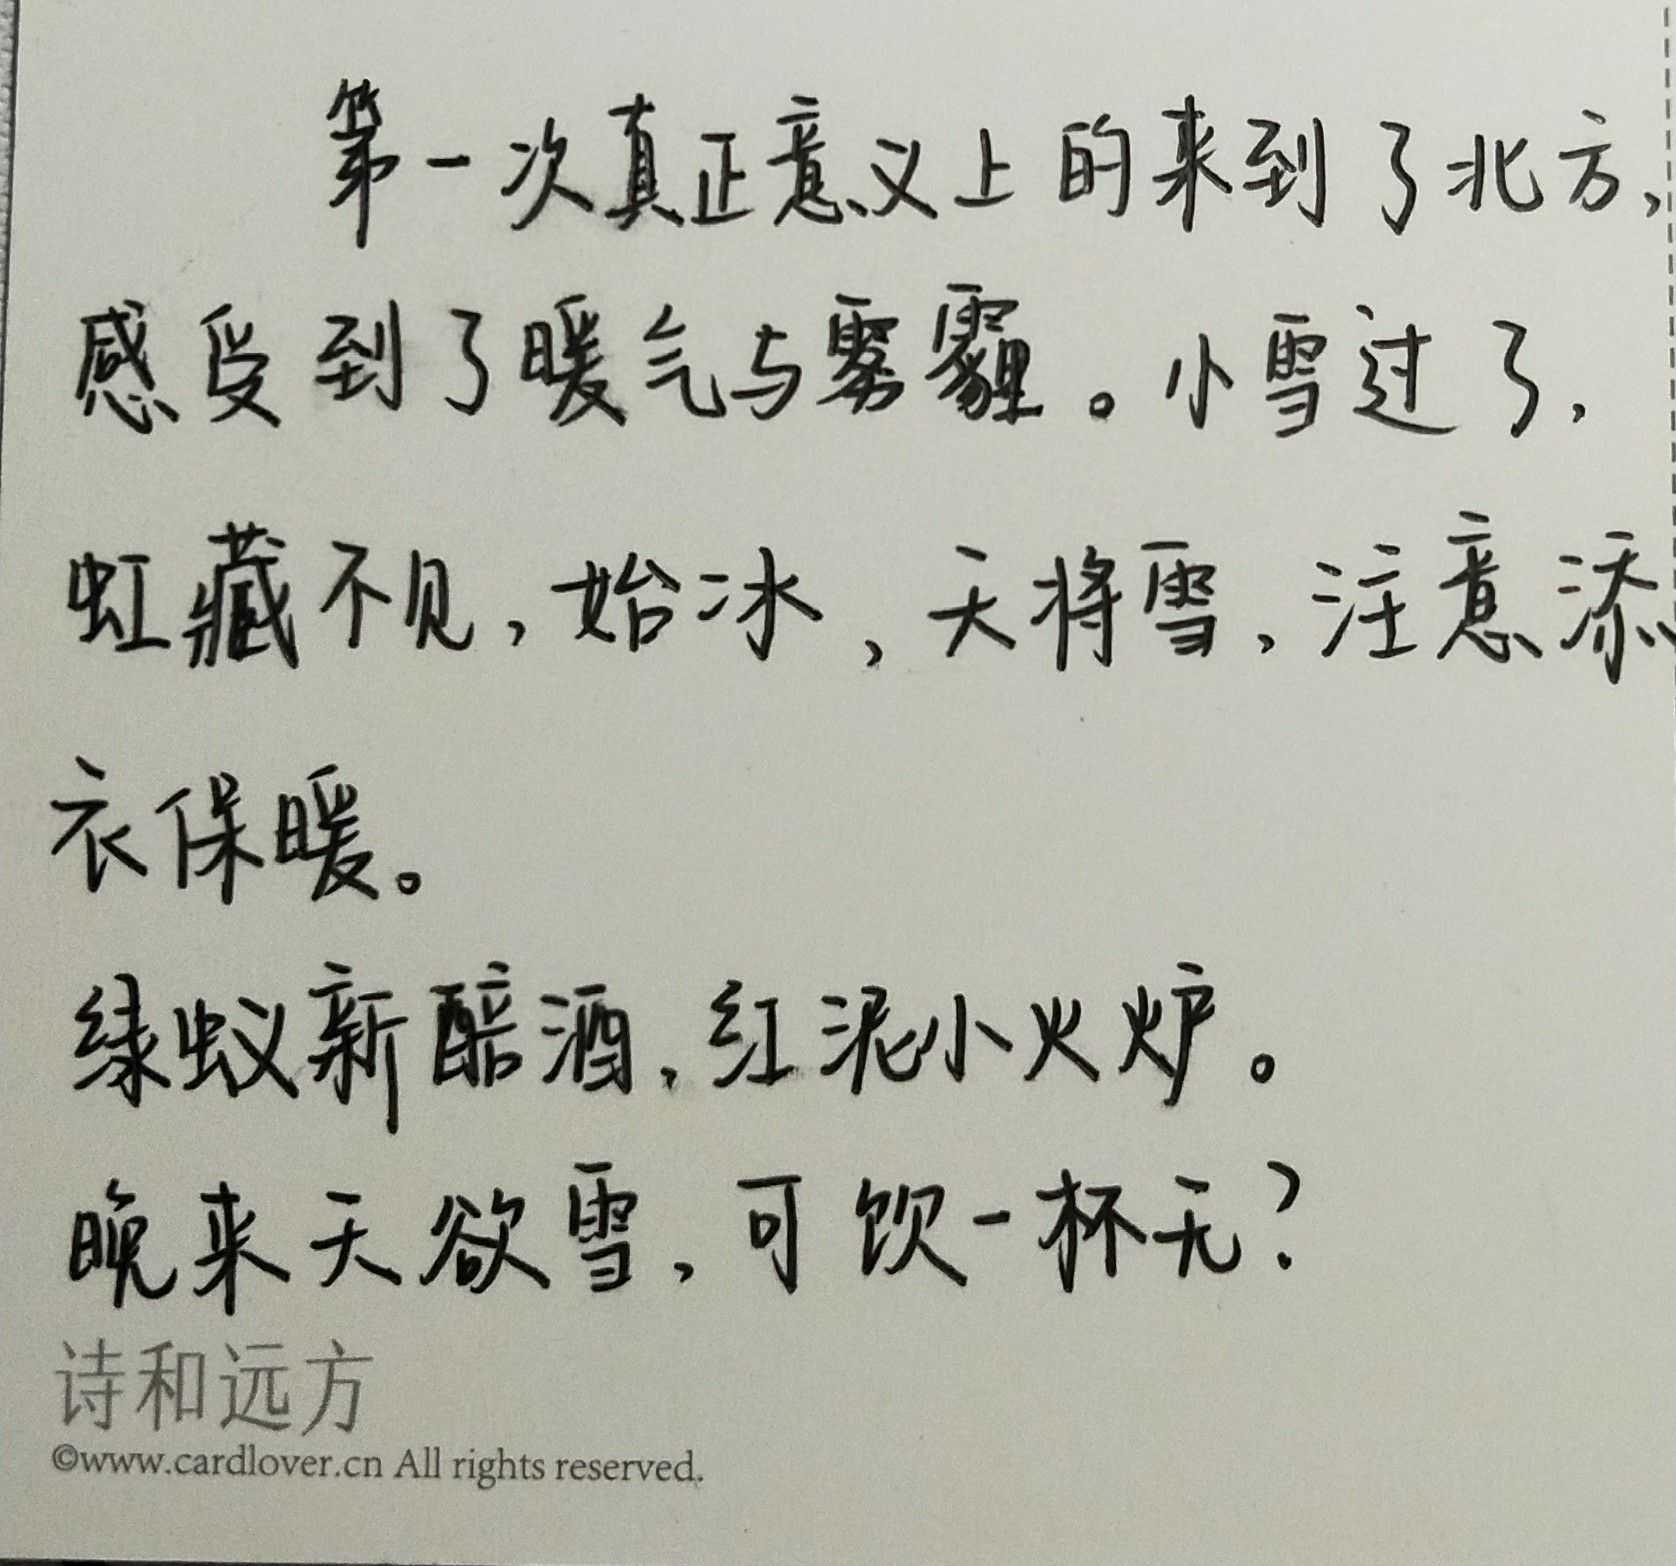 第一次真正意义上的来到了北方，
感受到了暖气与雾霾。小雪过了，
虹藏不见，始冰，天将雪，注意添
衣保暖。
绿蚁新醅酒，红泥小火炉。
晚来天欲雪，可饮一杯无？
诗和远方
©www.cardlover.cn All rights reserved.